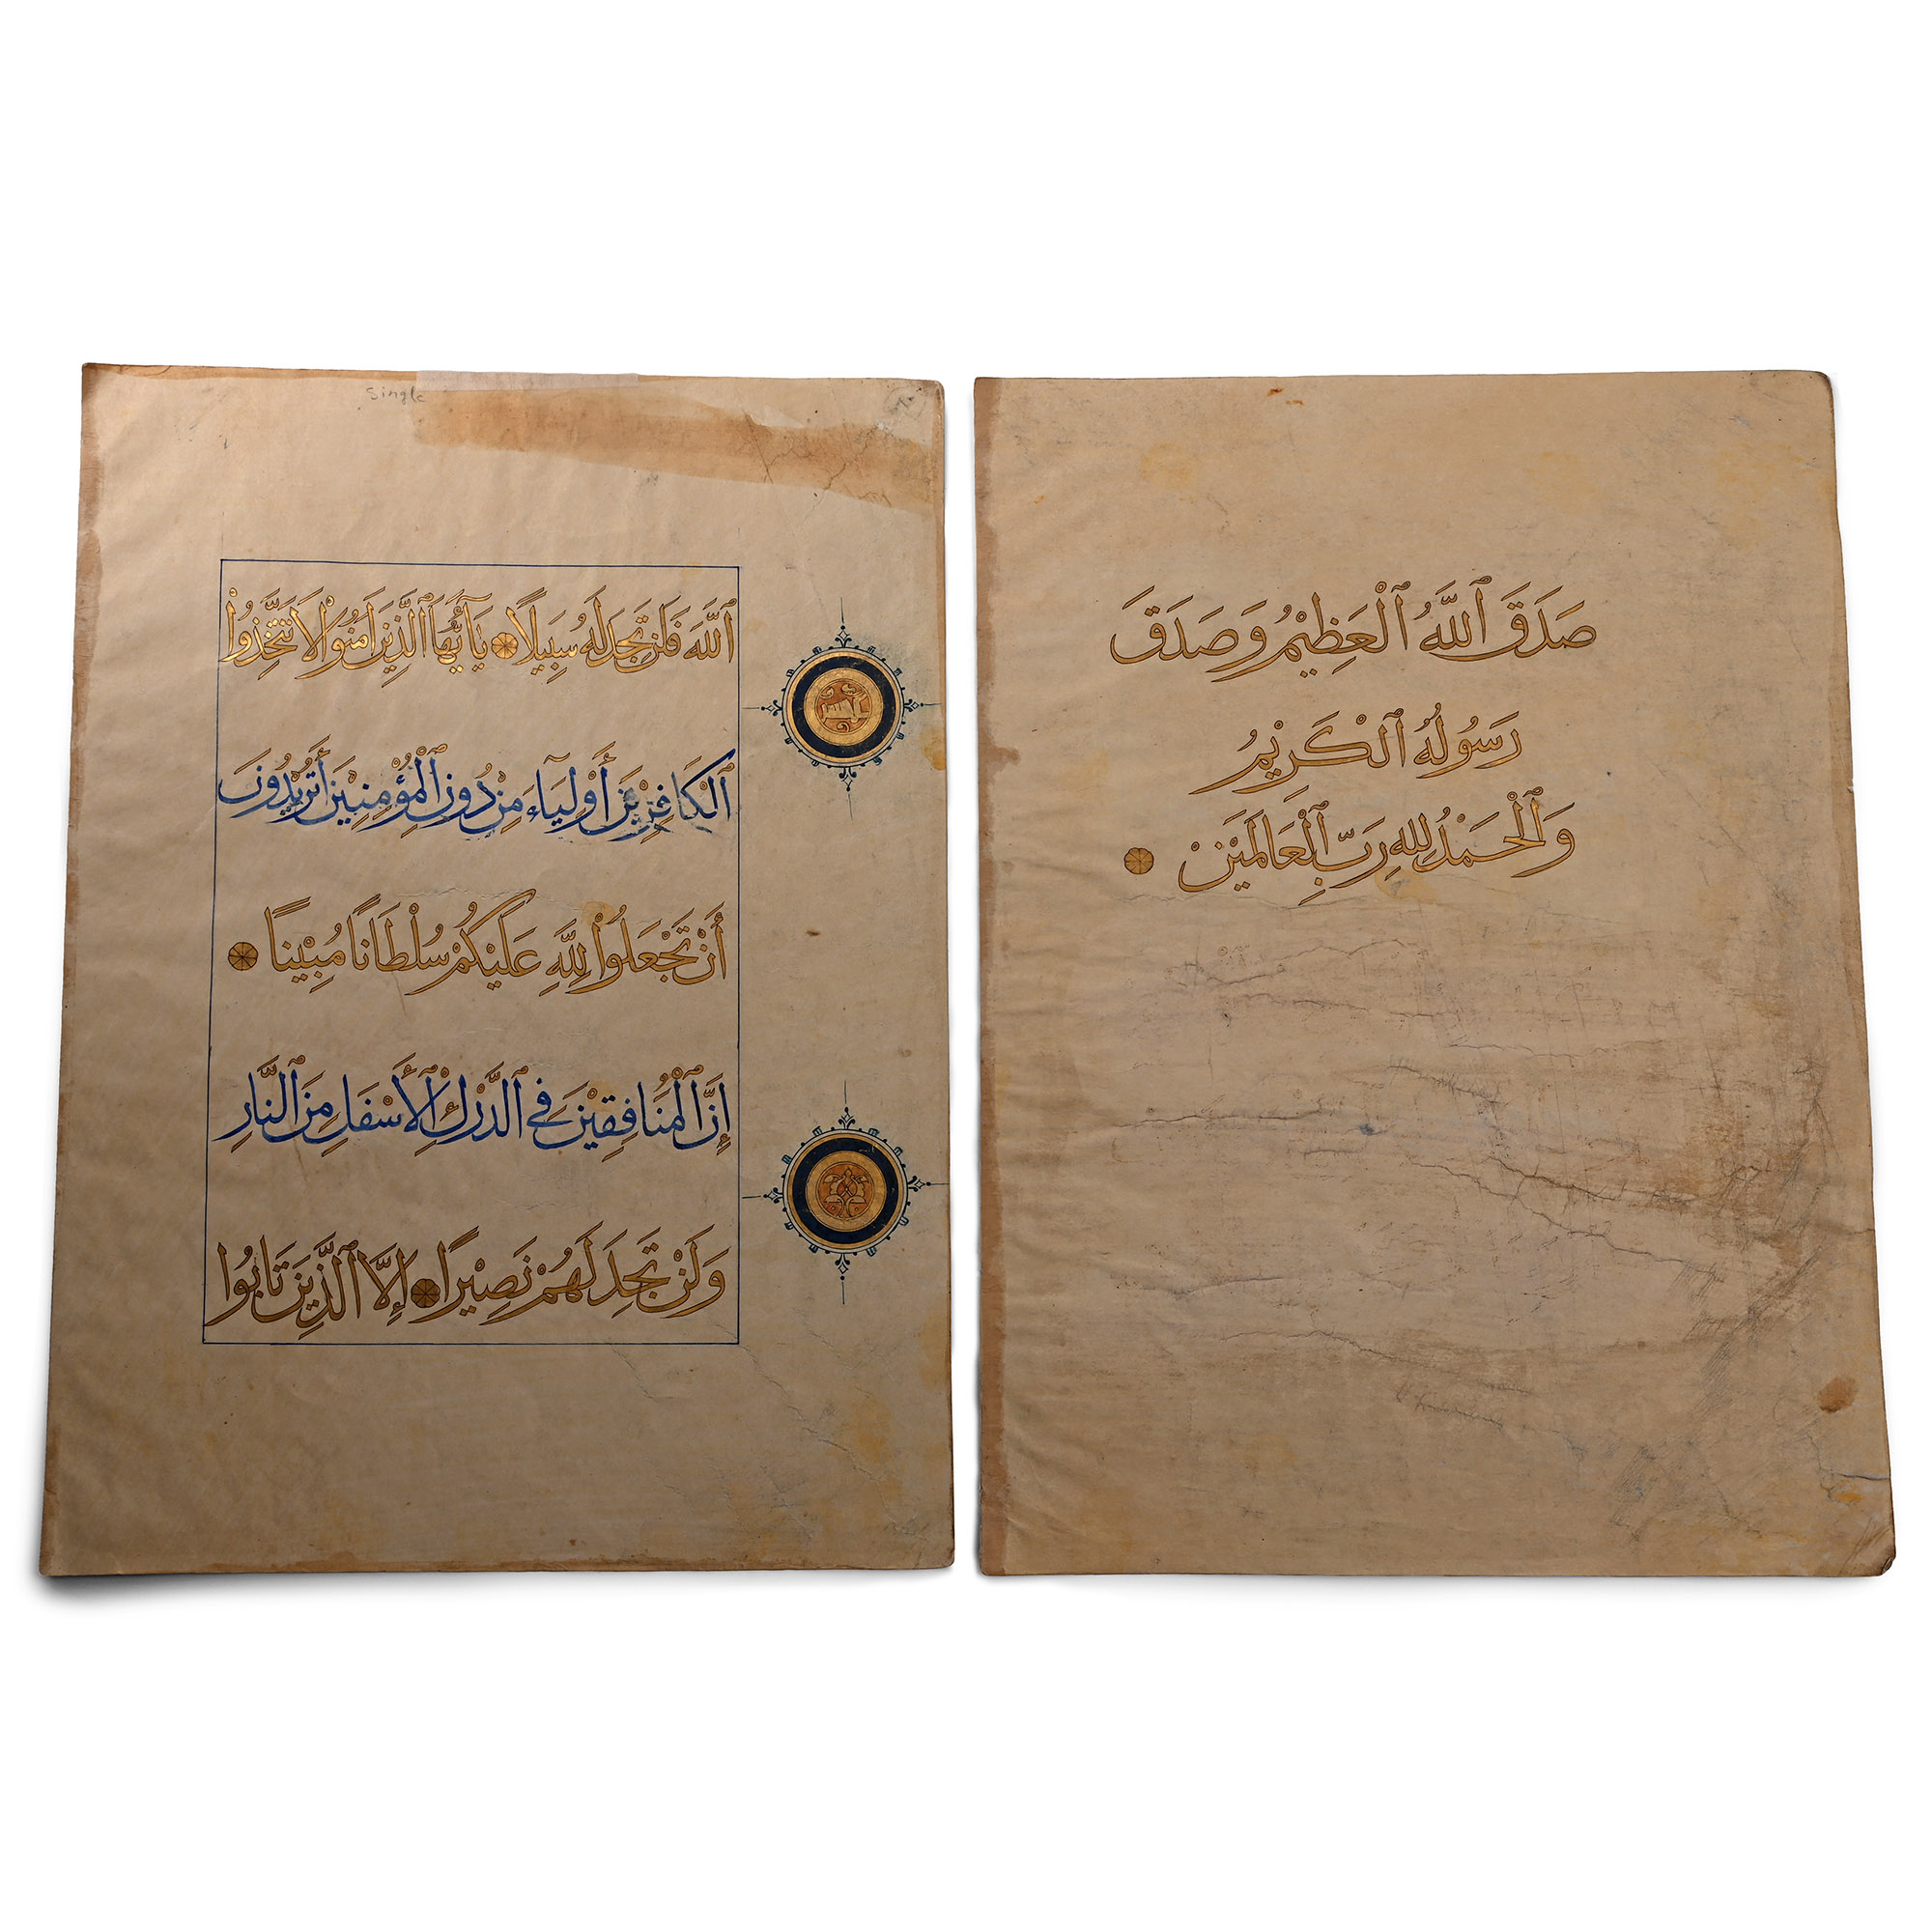 Single
ٱللَّهُ فَلَن تَجِدَ لَهُ سَبِيلًا يَآ أَيُّهَا ٱلَّذِينَ آمَنُوا لَا تَتَّخِذُوا
ٱلْكَافِرِينَ أَوْلِيَآءَ مِنْ دُونِ ٱلْمُؤْمِنِينَ أَتُرِيدُونَ
أَنْ تَجْعَلُوا لِلَّهِ عَلَيْكُمْ سُلْطَانًا مُبِينًا
إِنَّ ٱلْمُنَافِقِينَ فِي ٱلدَّرْكِ ٱلْأَسْفَلِ مِنَ ٱلنَّارِ
وَلَنْ تَجِدَ لَهُمْ نَصِيرًا إِلَّا ٱلَّذِينَ تَابُوا
صَدَقَ ٱللَّهُ ٱلْعَظِيمُ وَصَدَقَ
رَسُولُهُ ٱلْكَرِيمُ
وَٱلْحَمْدُ لِلَّهِ رَبِّ ٱلْعَالَمِينَ